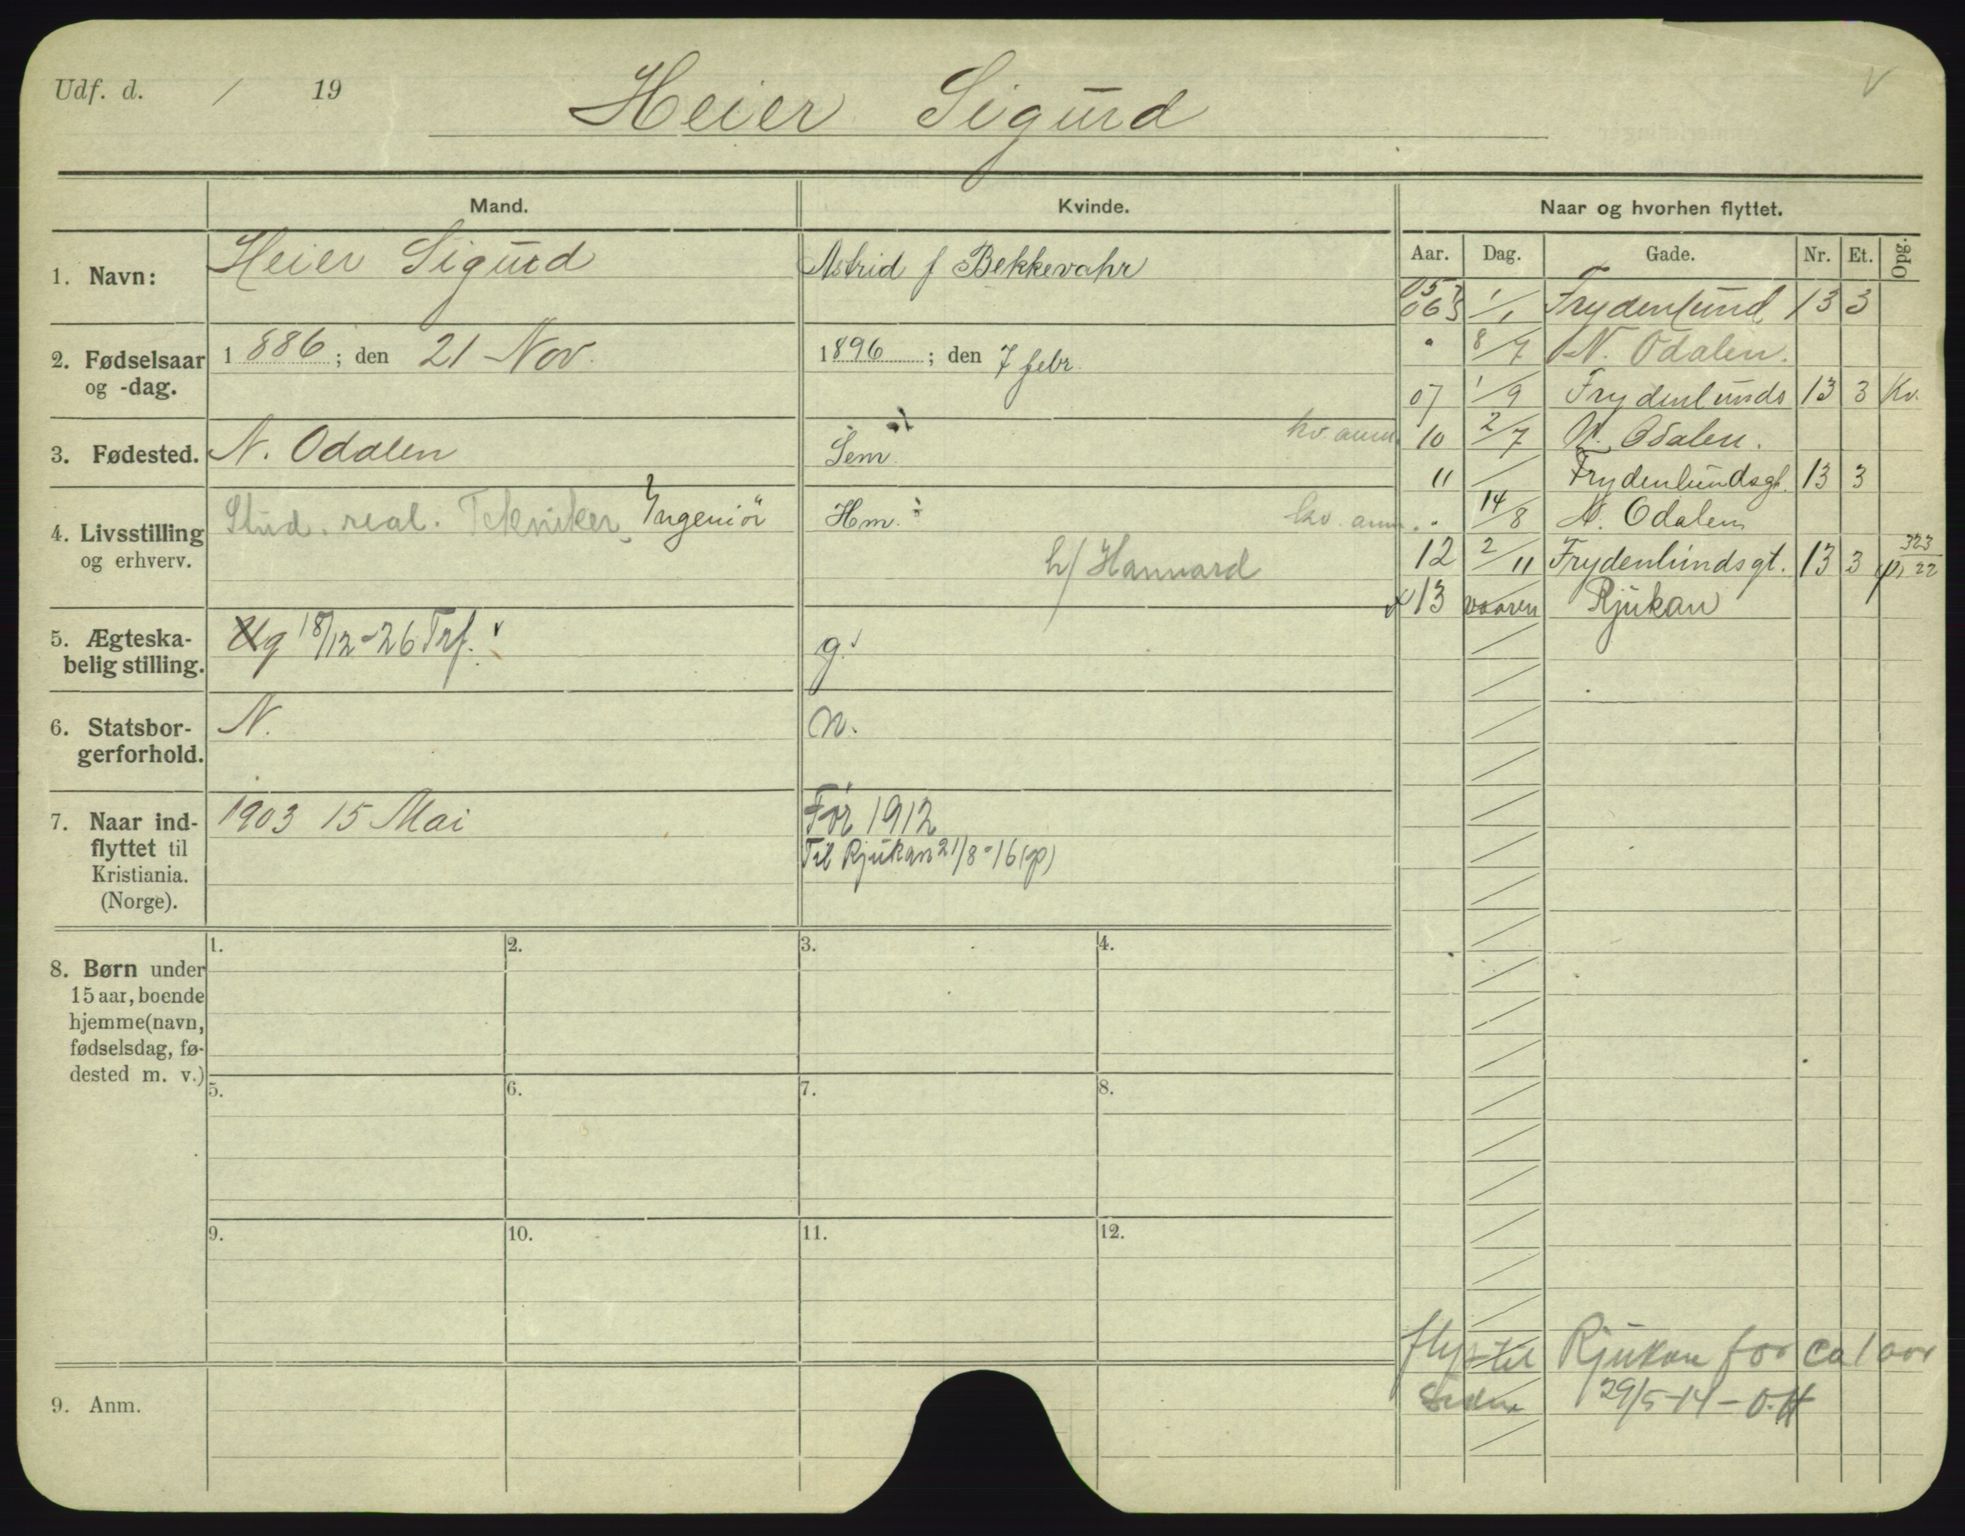 Udf. d. / 19
Heier Sigurd
V
Mand.
Kvinde.
Naar og hvorhen flyttet.
Aar. Dag. Gade. Nr. Et. Opg.
1. Navn:
Heier Sigurd
Astrid f Bekkevahr
05 06} 1/1 Frydenlund 13 3
2. Fødselsaar og -dag.
1 886 ; den 21 Nov.
1 896 ; den 7 febr.
" 8/7 N. Odalen.
07 1/9 Frydenlunds 13 3 Kv.
3. Fødested.
N. Odalen
Sem
kv. anm. 10 2/7 N. Odalen.
11 / Frydenlundsgt. 13 3
4. Livsstilling og erhverv.
Stud. real. Tekniker, Ingeniör
Hm.
h/ Hannard
kv. anm. " 14/8 N. Odalen
12 2/11 Frydenlundsgt. 13 3 323/22
x 13 vaaren Rjukan
5. Ægteska-
belig stilling.
Ug 18/12-26 Trf. v
g.
6. Statsbor-
gerforhold.
N.
N.
7. Naar ind-
flyttet til
Kristiania.
(Norge).
1903 15 Mai
Før 1912
Til Rjukan 21/8-16 (gp)
8. Børn under
15 aar, boende
hjemme (navn,
fødselsdag, fø-
dested m. v.)
1. 2. 3. 4.
5. 6. 7. 8.
9. 10. 11. 12.
flyt til Rjukan for ca 1 aar
siden 29/5-14 - O.H
9. Anm.